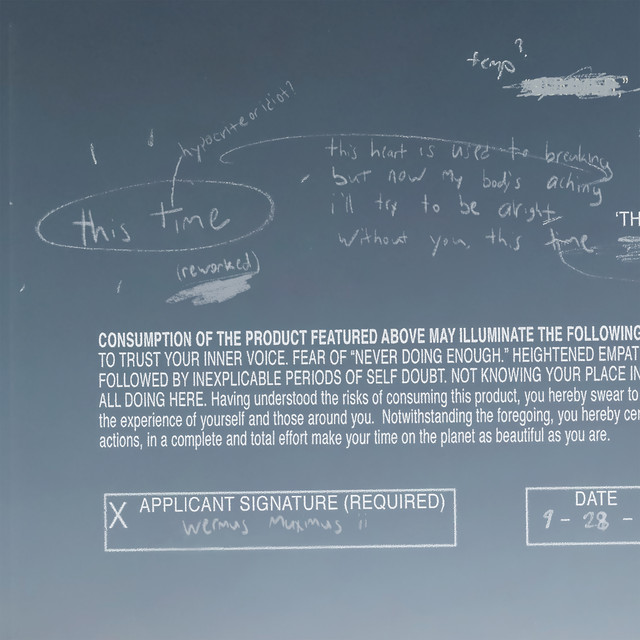 temp?
hypocrite or idiot?
this time
(reworked)
this heart is used to breaking
but now my body's aching
i'll try to be alright
without you, this time
'TH
CONSUMPTION OF THE PRODUCT FEATURED ABOVE MAY ILLUMINATE THE FOLLOWING
TO TRUST YOUR INNER VOICE. FEAR OF “NEVER DOING ENOUGH.” HEIGHTENED EMPAT
FOLLOWED BY INEXPLICABLE PERIODS OF SELF DOUBT. NOT KNOWING YOUR PLACE IN
ALL DOING HERE. Having understood the risks of consuming this product, you hereby swear to
the experience of yourself and those around you. Notwithstanding the foregoing, you hereby cer
actions, in a complete and total effort make your time on the planet as beautiful as you are.
X APPLICANT SIGNATURE (REQUIRED)
wermus muximus ii
DATE
9 - 28 -